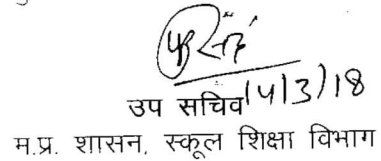 उप सचिव 14/3/18
म.प्र. शासन, स्कूल शिक्षा विभाग